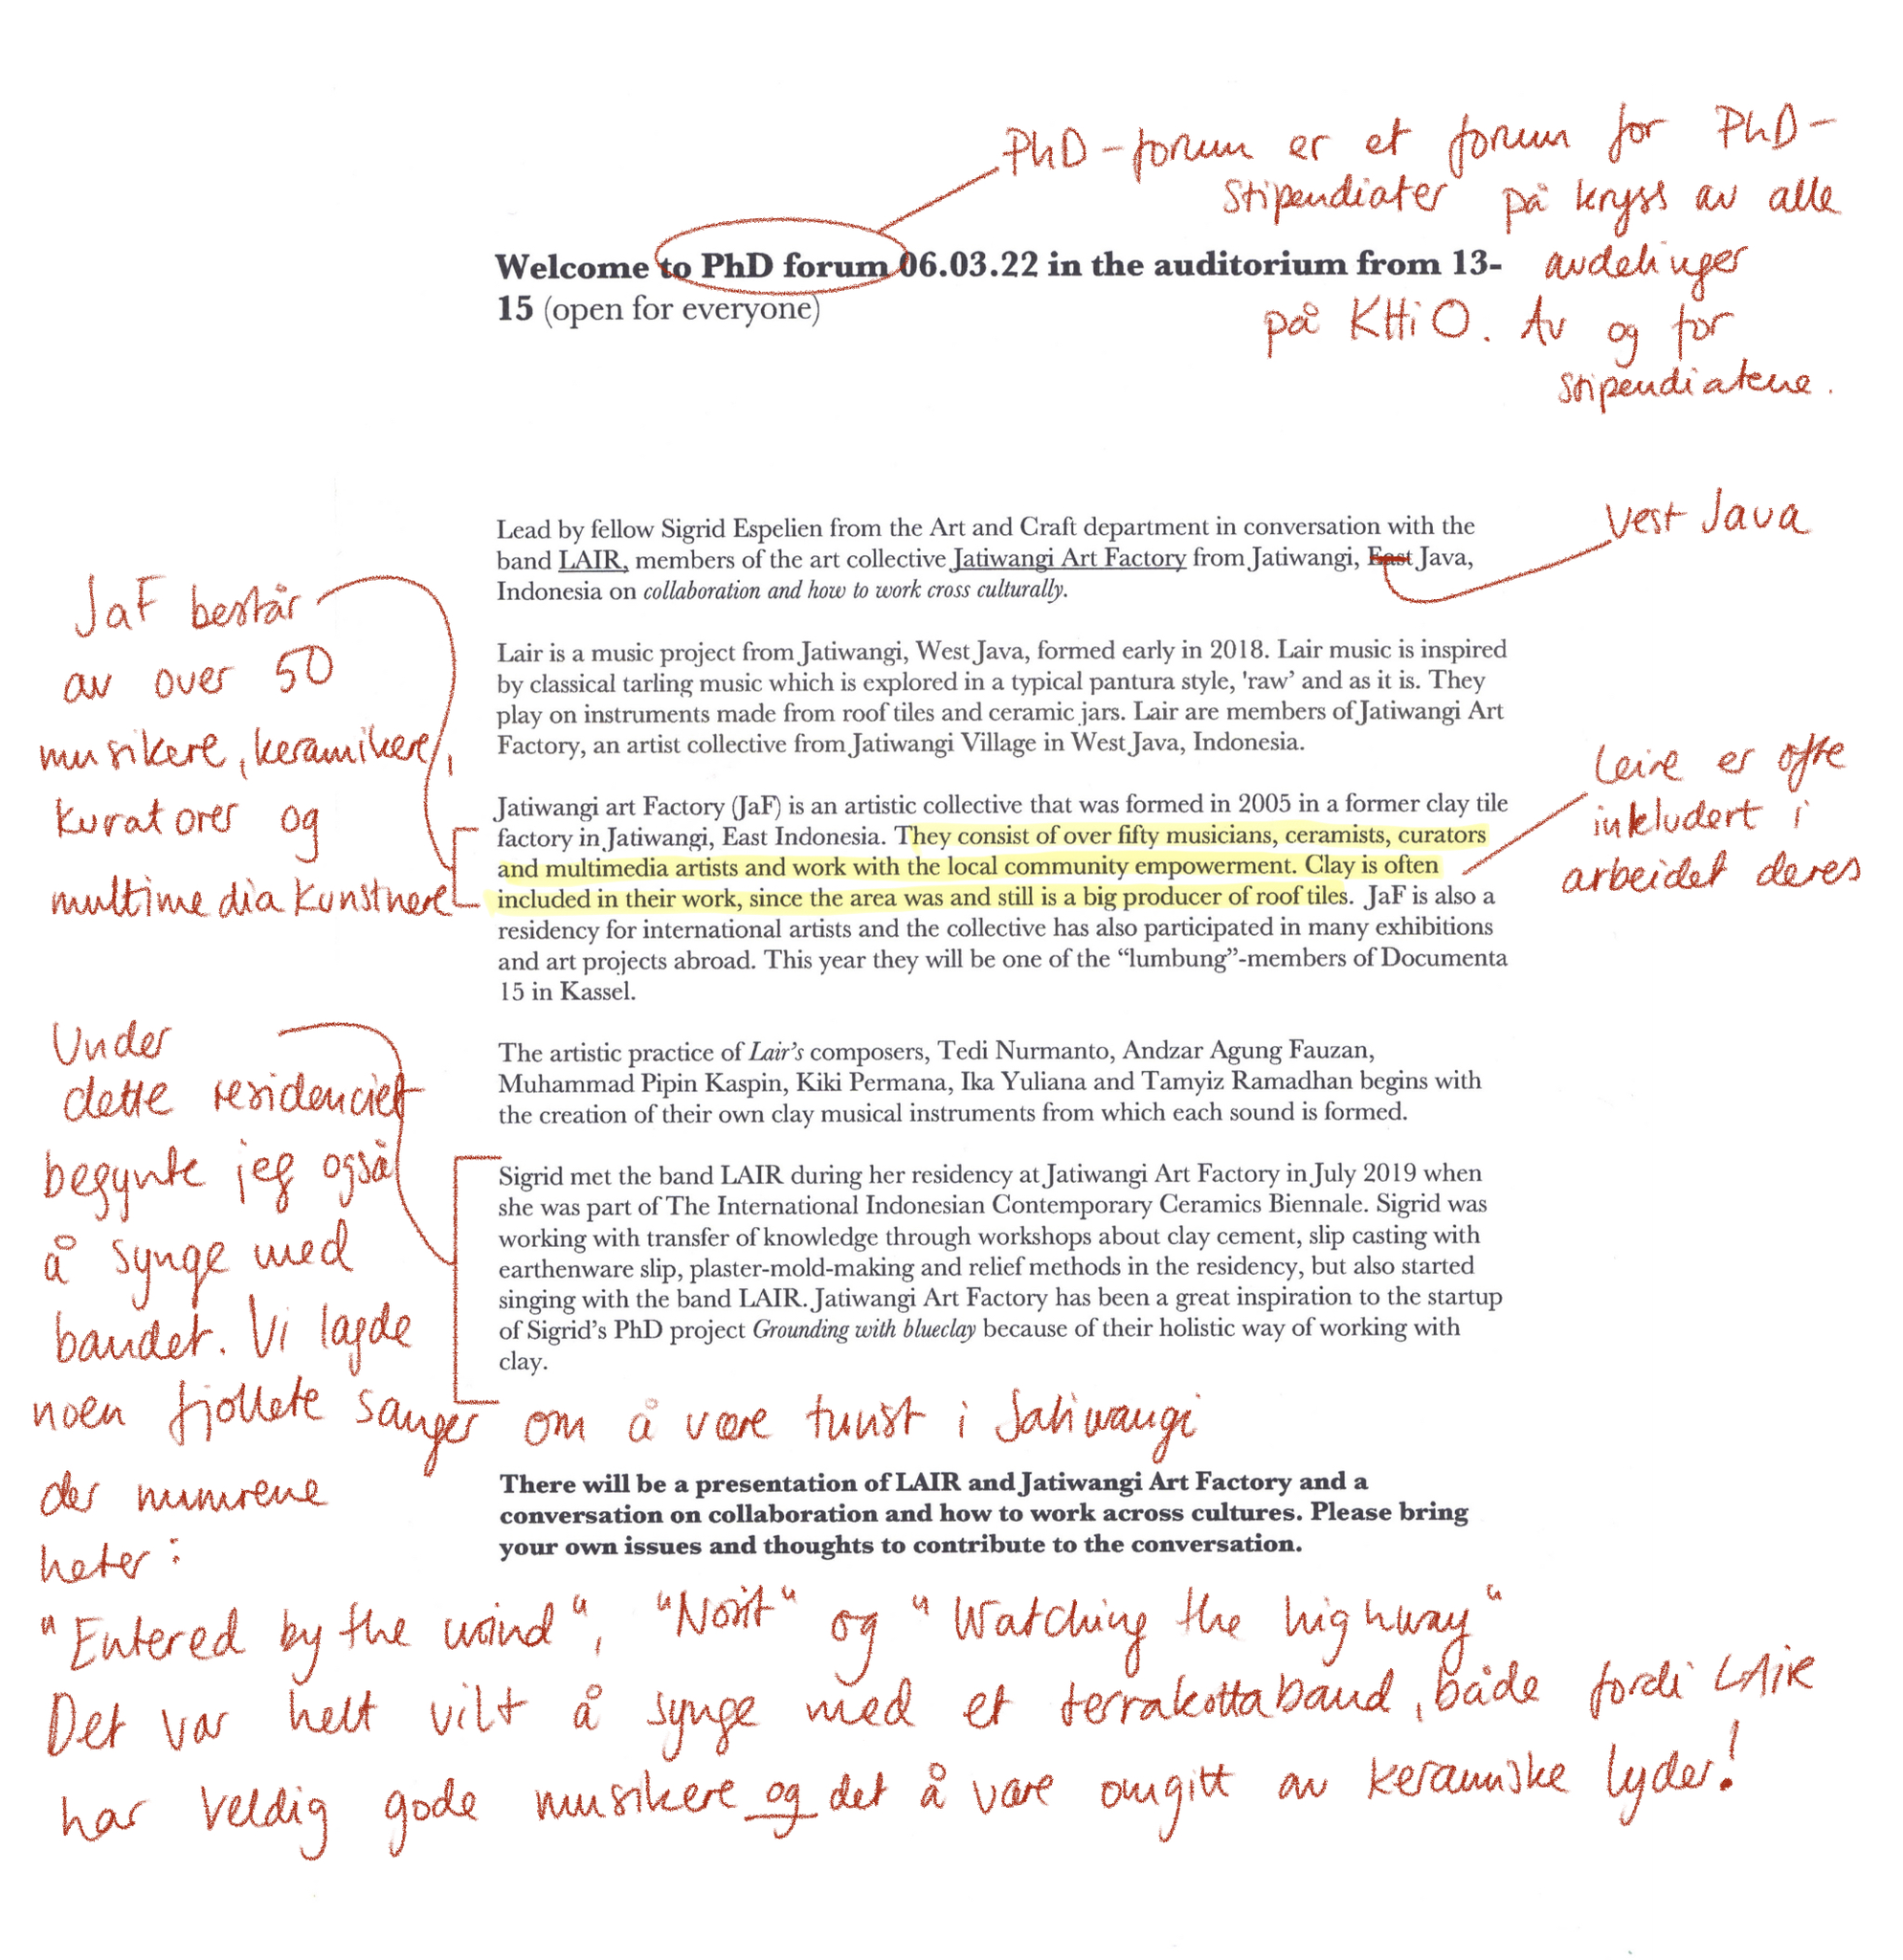 PhD-forum er et forum for PhD-
stipendiater på kryss av alle
avdelinger
på KHiO. Av og for
stipendiatene.
Welcome to PhD forum 06.03.22 in the auditorium from 13-
15 (open for everyone)
Vest Java
Lead by fellow Sigrid Espelien from the Art and Craft department in conversation with the
band LAIR, members of the art collective Jatiwangi Art Factory from Jatiwangi, East Java,
Indonesia on collaboration and how to work cross culturally.
JaF består
av over 50
musikere, keramikere,
kuratorer og
multimedia kunstnere
Lair is a music project from Jatiwangi, West Java, formed early in 2018. Lair music is inspired
by classical tarling music which is explored in a typical pantura style, 'raw' and as it is. They
play on instruments made from roof tiles and ceramic jars. Lair are members of Jatiwangi Art
Factory, an artist collective from Jatiwangi Village in West Java, Indonesia.
Leire er ofte
inkludert i
arbeidet deres
Jatiwangi art Factory (JaF) is an artistic collective that was formed in 2005 in a former clay tile
factory in Jatiwangi, East Indonesia. They consist of over fifty musicians, ceramists, curators
and multimedia artists and work with the local community empowerment. Clay is often
included in their work, since the area was and still is a big producer of roof tiles. JaF is also a
residency for international artists and the collective has also participated in many exhibitions
and art projects abroad. This year they will be one of the “lumbung”-members of Documenta
15 in Kassel.
The artistic practice of Lair's composers, Tedi Nurmanto, Andzar Agung Fauzan,
Muhammad Pipin Kaspin, Kiki Permana, Ika Yuliana and Tamyiz Ramadhan begins with
the creation of their own clay musical instruments from which each sound is formed.
Sigrid met the band LAIR during her residency at Jatiwangi Art Factory in July 2019 when
she was part of The International Indonesian Contemporary Ceramics Biennale. Sigrid was
working with transfer of knowledge through workshops about clay cement, slip casting with
earthenware slip, plaster-mold-making and relief methods in the residency, but also started
singing with the band LAIR. Jatiwangi Art Factory has been a great inspiration to the startup
of Sigrid's PhD project Grounding with blueclay because of their holistic way of working with
clay.
Under
dette residenciet
begynte jeg også
å synge med
bandet. Vi lagde
noen fjollete sanger om å være turist i Jatiwangi
der numrene
heter:
There will be a presentation of LAIR and Jatiwangi Art Factory and a
conversation on collaboration and how to work across cultures. Please bring
your own issues and thoughts to contribute to the conversation.
"Entered by the wind", og "Watching the highway"
Det var helt vilt å synge med et terrakottaband, både fordi LAIR
har veldig gode musikere og det å være omgitt av keramiske lyder!